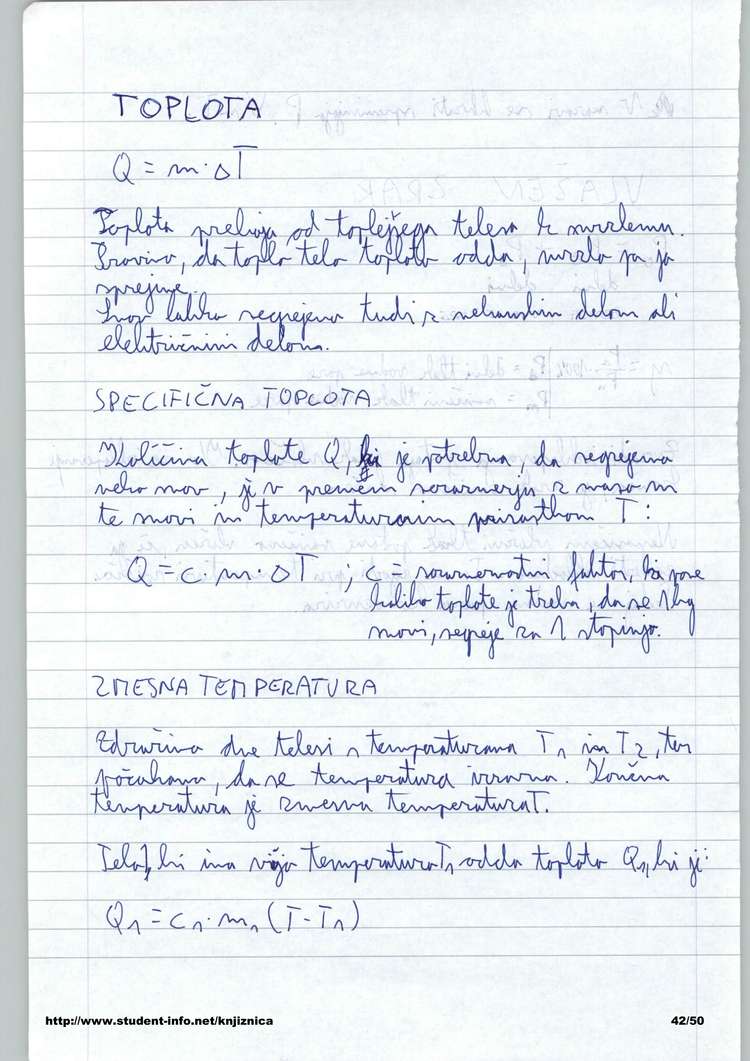 TOPLOTA
Q = m · ΔT
Toplota prehaja od toplejšega telesa k mrzlemu.
Pravimo, da toplo telo toploto odda, mrzlo pa jo
sprejme.
Snov lahko segrejemo tudi z mehanskim delom ali
električnim delom.
SPECIFIČNA TOPLOTA
Količina toplote Q, ki je potrebna, da segrejemo
neko snov, je v premem sorazmerju z maso m
te snovi in temperaturnim prirastkom T:
Q = c · m · ΔT ; c = sorazmernostni faktor, ki pove
koliko toplote je treba, da se 1kg
snovi, segreje za 1 stopinjo.
ZMESNA TEMPERATURA
Združimo dve telesi s temperaturama T1 in T2, ter
počakamo, da se temperatura izravna. Končna
temperatura je zmesna temperatura T.
Telo 1, ki ima višjo temperaturo T1 odda toploto Q1, ki je:
Q1 = c1 · m1 (T - T1)
http://www.student-info.net/knjiznica 42/50